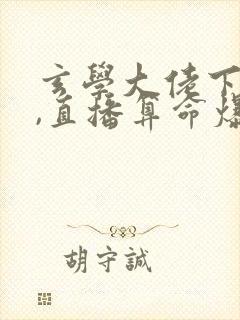 玄學大佬下
,直播算命爆
胡守誠